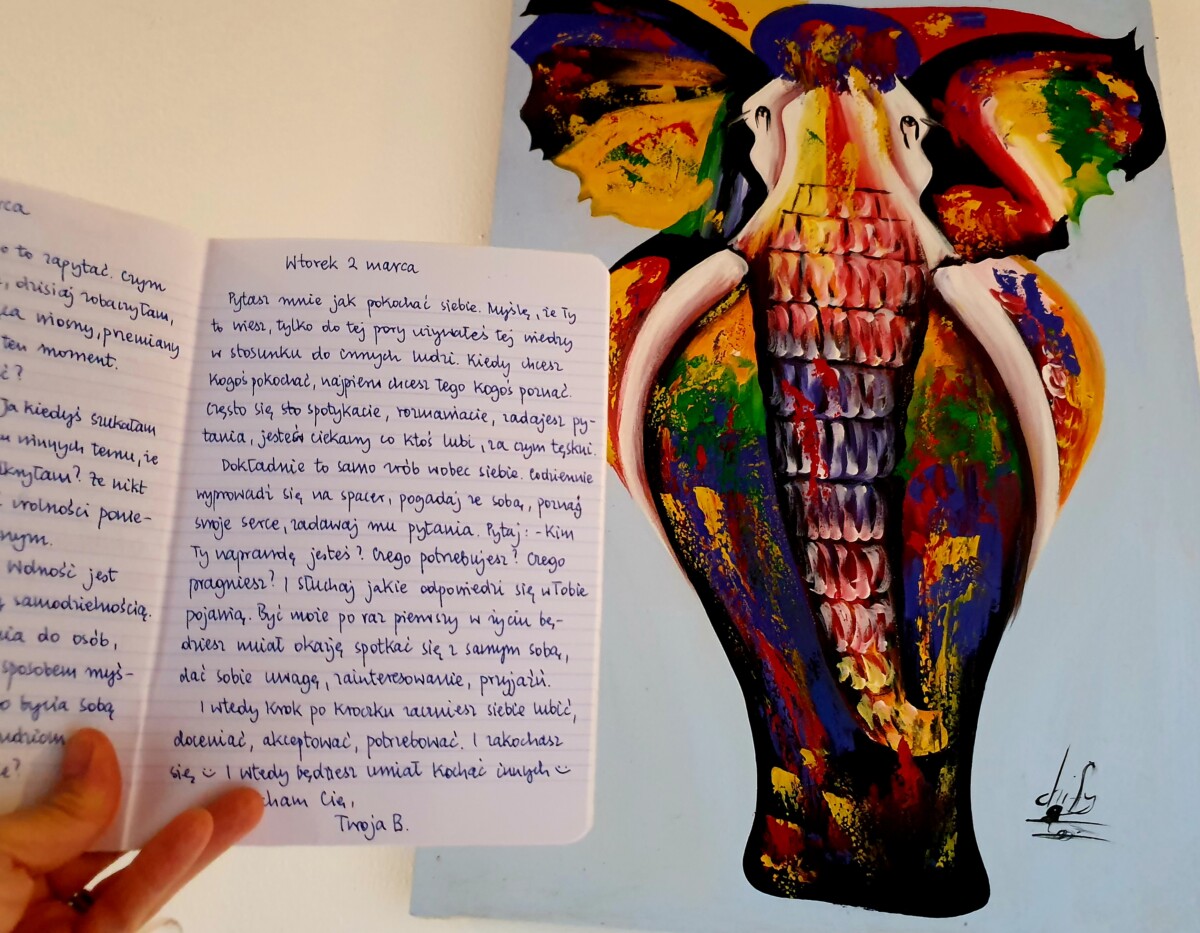 to zapytać. Czym
dzisiaj zobaczyłam,
wiosny, przemiany
ten moment.
Ja kiedyś szukałam
winnych temu, że
Że nikt
wolności ponie-
Wolność jest
samodzielnością.
do osób,
sposobem myś-
bycia sobą
Wtorek 2 marca
Pytasz mnie jak pokochać siebie. Myślę, że Ty
to wiesz, tylko do tej pory używałeś tej wiedzy
w stosunku do innych ludzi. Kiedy chcesz
Kogoś pokochać, najpierw chcesz Tego Kogoś poznać.
Często się sto spotykacie, rozmawiacie, zadajesz py-
tania, jesteś ciekawy co Ktoś lubi, za czym tęskni.
Dokładnie to samo zrób wobec siebie. Codziennie
wyprowadź się na spacer, pogadaj ze sobą, poznaj
swoje serce, zadawaj mu pytania. Pytaj: - Kim
Ty naprawdę jesteś? Czego potrzebujesz? Czego
pragniesz? I słuchaj jakie odpowiedzi się w Tobie
pojawią. Być może po raz pierwszy w życiu bę-
dziesz miał okazję spotkać się z samym sobą,
dać sobie uwagę, zainteresowanie, przyjaźń.
I wtedy Krok po Kroczku zaczniesz siebie lubić,
doceniać, akceptować, potrzebować. I zakochasz
się :) I wtedy będziesz umiał Kochać innych :)
cham Cię,
Twoja B.